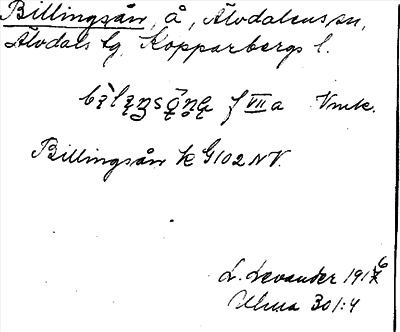 Billingsån, å, Älvdalens sn,
Älvdals tg. Kopparbergs l.
f VII a Vmk.
Billingsån k G102NV.
L. Levander 1916
Ulma 301:4